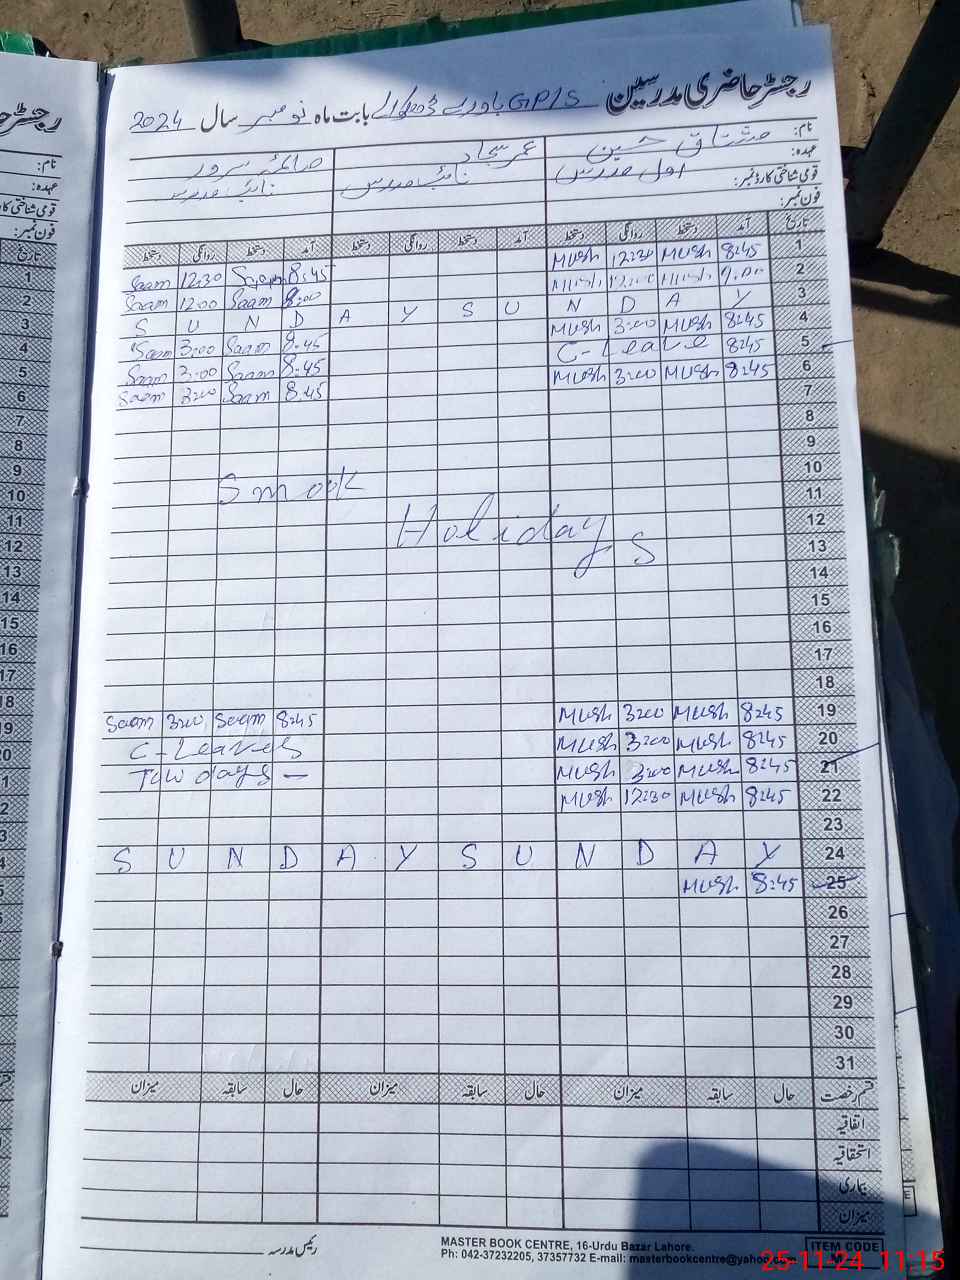 رجسٹر حاضری مدرسین GPS بابت ماہ نومبر سال 2024
نام: مشتاق حسین عمر سجاد صائمہ سرور
عہدہ: اول مدرس نائب مدرس نائب مدرس
قومی شناختی کارڈ نمبر:
فون نمبر:
تاریخ آمد دستخط روانگی دستخط آمد دستخط روانگی دستخط آمد دستخط روانگی دستخط
1 8:45 Mush 12:30 Mush 8:45 Saam 12:30 Saam
2 9:00 Mush 12:00 Mush 8:00 Saam 12:00 Saam
3 S U N D A Y S U N D A Y
4 8:45 Mush 3:00 Mush 8:45 Saam 3:00 Saam
5 8:45 C-Leave 8:45 Saam 3:00 Saam
6 8:45 Mush 3:00 Mush 8:45 Saam 3:00 Saam
7
8
9
10 Smook
11
12 Holidays
13
14
15
16
17
18
19 8:45 Mush 3:00 Mush 8:45 Saam 3:00 Saam
20 8:45 Mush 3:00 Mush C-Leaves
21 8:45 Mush 3:00 Mush Tow days —
22 8:45 Mush 12:30 Mush
23
24 S U N D A Y S U N D A Y
25 8:45 Mush
26
27
28
29
30
31
قسم رخصت حال سابقہ میزان حال سابقہ میزان حال سابقہ میزان
اتفاقیہ
استحقاقیہ
بیماری
میزان
رئیس مدرسہ
MASTER BOOK CENTRE, 16-Urdu Bazar Lahore.
Ph: 042-37232205, 37357732 E-mail: masterbookcentre@yahoo.com
ITEM CODE
25-11-24 11:15